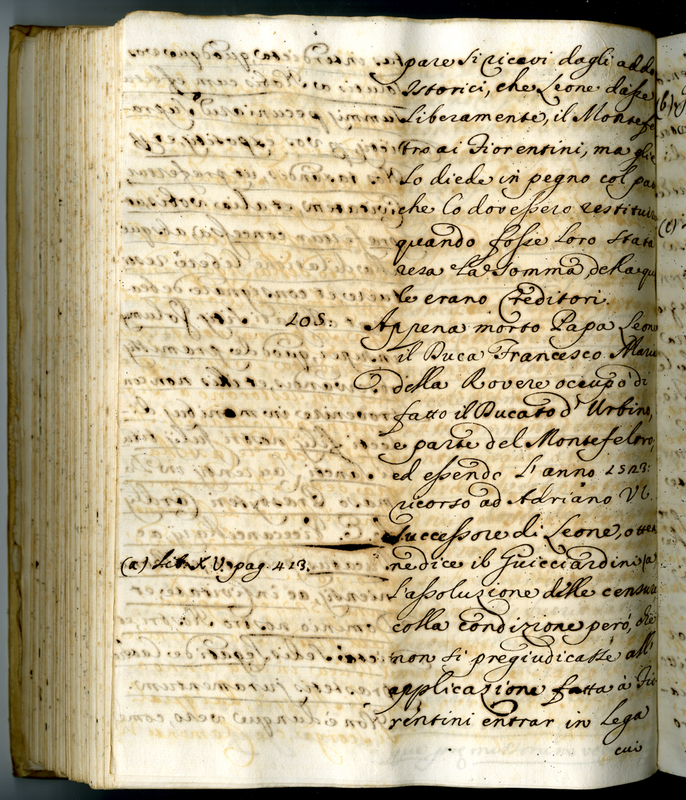 pare si ricavi dagli addo
Istorici, che Leone dasse
liberamente, il Montefe
tro ai Fiorentini, ma glie
lo diede in pegno col pat
che lo dovessero restituire
quando fosse loro stata
resa la somma, della qua
le erano Creditori.
105: Appena morto Papa Leone
il Duca Francesco Maria
della Rovere occupò di
fatto il Ducato d'Urbino,
e parte del Montefeltro,
ed essendo l'anno 1523:
ricorso ad Adriano VI.
Successore di Leone, otten
ne dice il Guicciardini (a
(a) Lib. XV. pag. 413.
l'assoluzione delle censure
colla condizione però, che
non si pregiudicasse all'
applicazione fatta à Fio
rentini entrar in Lega
cui
(b)
(c)